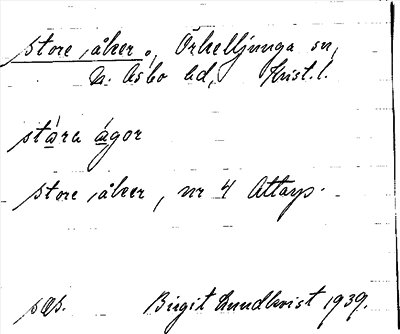 store åker, Örkelljunga sn,
N. Åsbo hd, Krist. l.
stára ágor
store åker, nr 4 Attarp.
sas. Birgit Lundkvist 1939.